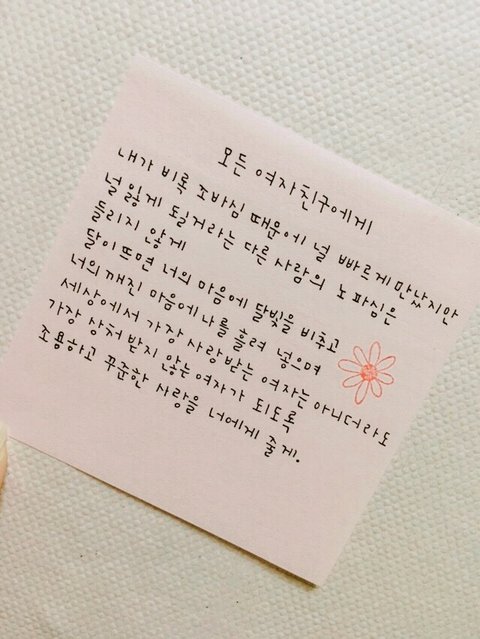 모든 여자친구에게
내가 비록 조바심 때문에 널 빠르게 만났지만
널 잃게 될거라는 다른 사람의 노파심은
들리지 않게
달이 뜨면 너의 마음에 달빛을 비추고
너의 깨진 마음에 나를 흘려 넣으며
세상에서 가장 사랑받는 여자는 아니더라도
가장 상처 받지 않는 여자가 되도록
조용하고 꾸준한 사랑을 너에게 줄게.